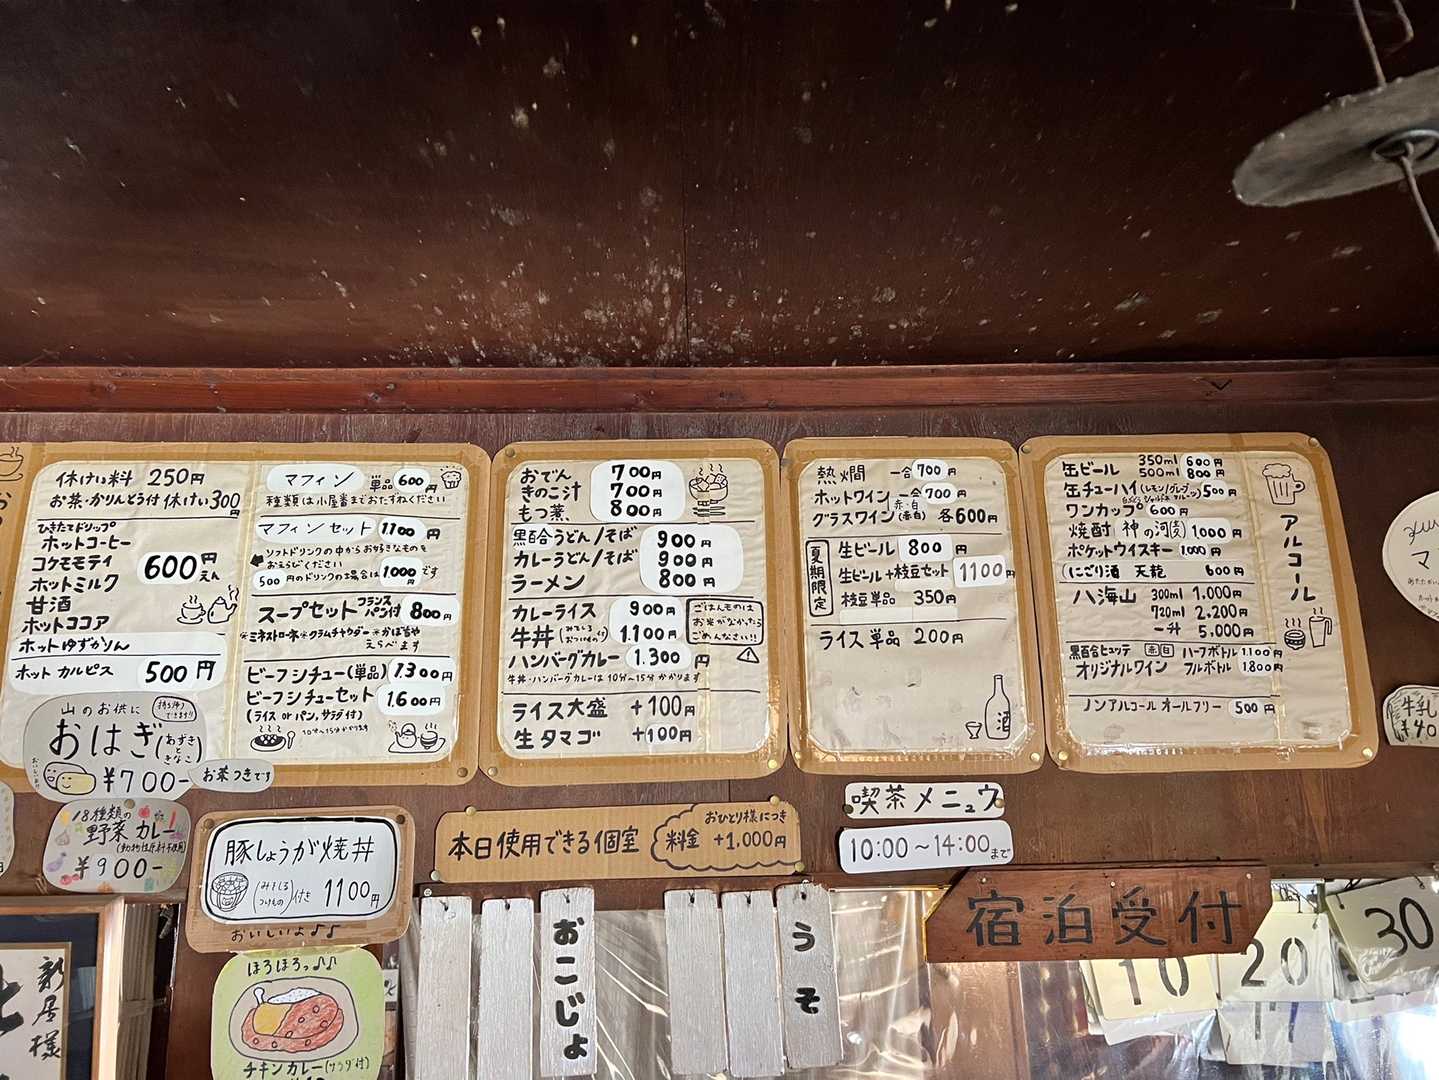 休けい料 250円
お茶・かりんとう付 休けい300円
ひきたてドリップ
ホットコーヒー
コケモモティ
ホットミルク
甘酒
ホットココア
600円
えん
ホットゆずかりん
ホット カルピス 500円
山のお供に
おはぎ(あずきときなこ)
¥700-
お茶つきです
マフィン 単品600円
種類は小屋番までおたずねください
マフィンセット 1,100円
ソフトドリンクの中からお好きなものを
おえらびください
500円のドリンクの場合は1,000円です
スープセット フランスパン付 800円
*ミネストローネ*クラムチャウダー*かぼちゃ
えらべます
ビーフシチュー(単品) 1,300円
ビーフシチューセット 1,600円
(ライス or パン,サラダ付)
10分~15分かかります
おでん 700円
きのこ汁 700円
もつ煮 800円
黒百合うどん/そば 900円
カレーうどん/そば 900円
ラーメン 800円
カレーライス 900円
牛丼(みそしる おつけもの付) 1,100円
ハンバーグカレー 1,300円
牛丼・ハンバーグカレーは10分~15分かかります
ごはんものは
お米がなかったら
ごめんなさい!!
ライス大盛 +100円
生タマゴ +100円
熱燗 一合 700円
ホットワイン 一合 700円
赤・白
グラスワイン(赤白) 各600円
夏期限定
生ビール 800円
生ビール+枝豆セット 1100円
枝豆単品 350円
ライス単品 200円
酒
アルコール
缶ビール 350ml 600円
500ml 800円
缶チューハイ(レモン/グレープ 500円
ワンカップ 600円
焼酎 神の河 1,000円
ポケットウイスキー 1,000円
にごり酒 天龍 600円
八海山 300ml 1,000円
720ml 2,200円
一升 5,000円
黒百合ヒュッテ 赤 白 ハーフボトル 1,100円
オリジナルワイン フルボトル 1,800円
ノンアルコール オールフリー 500円
マ
牛乳
18種類の
野菜カレー
¥900-
豚しょうが焼丼
(みそしる つけもの)付き 1100円
おいしいよ♪♪
本日使用できる個室
おひとり様につき
料金 +1,000円
喫茶メニュウ
10:00~14:00まで
宿泊受付
おこじょ
うそ
ほろほろっ♪♪
チキンカレー(サラダ付)
新居様
10
20
30
17